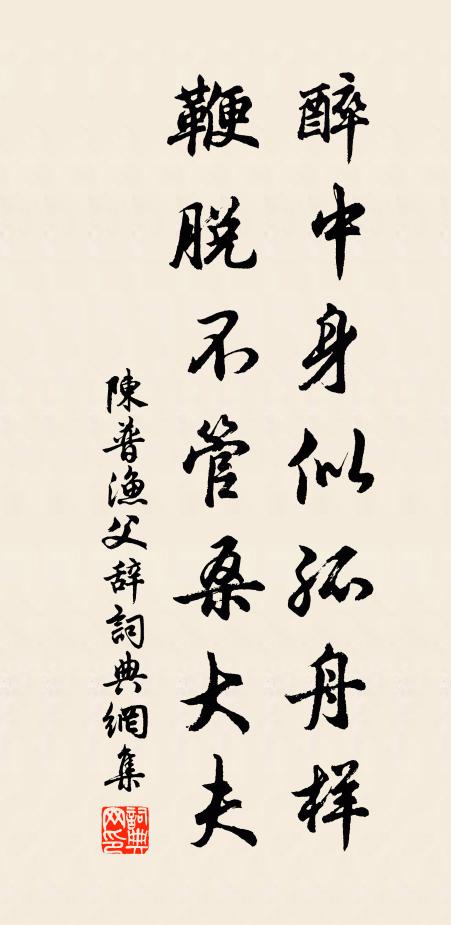 醉中身似孤舟样
鞭脱不管桑大夫
陳普漁父辞詞典網集
詞典網印